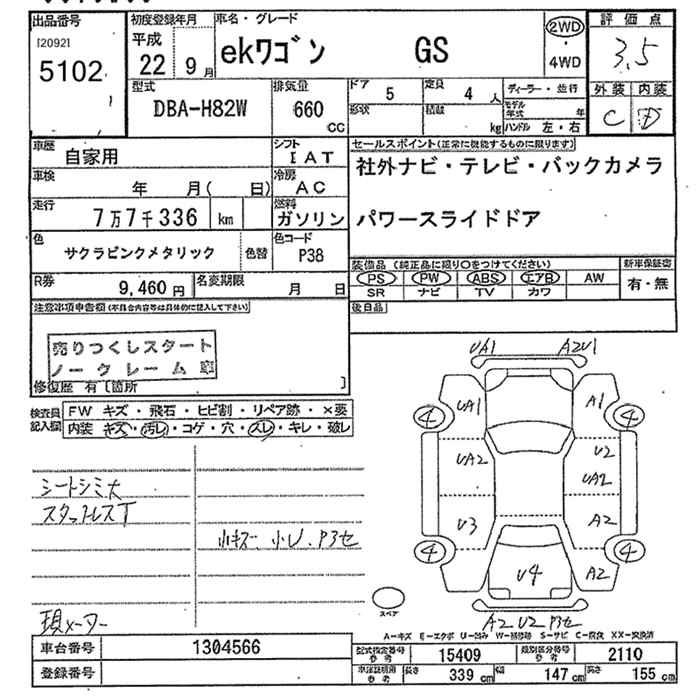 出品番号 初度登録年月 車名・グレード 評価点
(2092) 5102 平成 22 9月 ekワゴン GS 2WD ・ 4WD 3.5
外装 内装
C D
型式 DBA-H82W 排気量 660 CC
ドア 5 定員 4人 ディーラー・並行
形状 積載 kg モデル年式 年
ハンドル 左・右
車歴 自家用 シフト IAT
セールスポイント(正常に機能するものに限ります)
社外ナビ・テレビ・バックカメラ
パワースライドドア
車検 年 月( 日) 冷房 AC
走行 7万7千336 km 燃料 ガソリン
色 サクラピンクメタリック 色替 色コード P38
装備品(純正品に限り○をつけてください) 新車保証書
PS PW ABS エアB AW 有・無
SR ナビ TV カワ
R券 9,460円 名変期限 月 日
後日品
注意事項申告欄(不具合内容等は具体的に記入して下さい)
売りつくしスタート
ノークレーム
修復歴 有 [箇所 ]
検査員記入欄 FW キズ・飛石・ヒビ割・リペア跡・×要
内装 キズ・汚レ・コゲ・穴・スレ・キレ・破レ
シートシミ大
スタットレスT
小キズ、小U、Pハセ
現メーター
UA1 A2U1
UA1 A1
4 4
UA2 U2
UA2
U3 A2
4 4
U4 A2
A2 U2 Pハセ
スペア
A-キズ E-エクボ U-凹み W-補修跡 S-サビ C-腐食 XX-交換済
車台番号 1304566
登録番号
型式指定番号 参考 15409 類別区分番号 参考 2110
車体証明用 参考 長さ 339 cm 幅 147 cm 高さ 155 cm